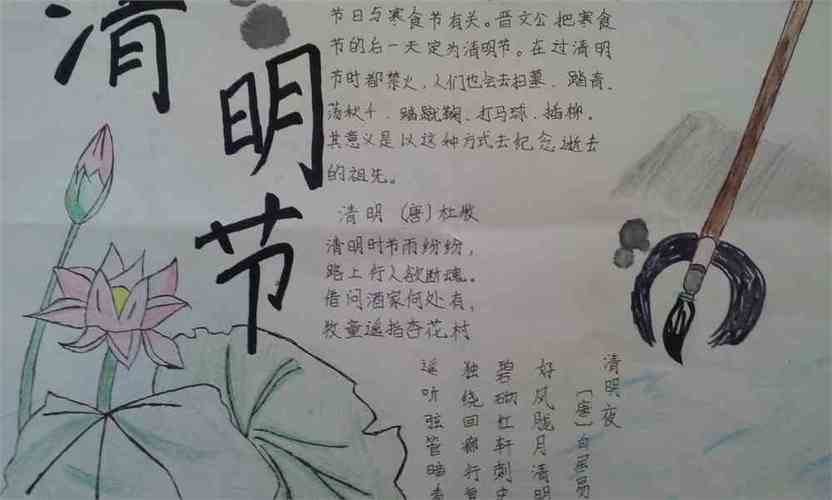 清明节
节日与寒食节有关。晋文公把寒食
节的后一天定为清明节。在过清明
节时都禁火，人们也会去扫墓、踏青、
荡秋千、踏蹴鞠、打马球、插柳。
其意义是以这种方式去纪念逝去
的祖先。
清明 (唐) 杜牧
清明时节雨纷纷，
路上行人欲断魂。
借问酒家何处有，
牧童遥指杏花村
清明夜
[唐]白居易
好风胧月清明
碧砌红轩刺史
独绕回廊行复
遥听弦管暗看